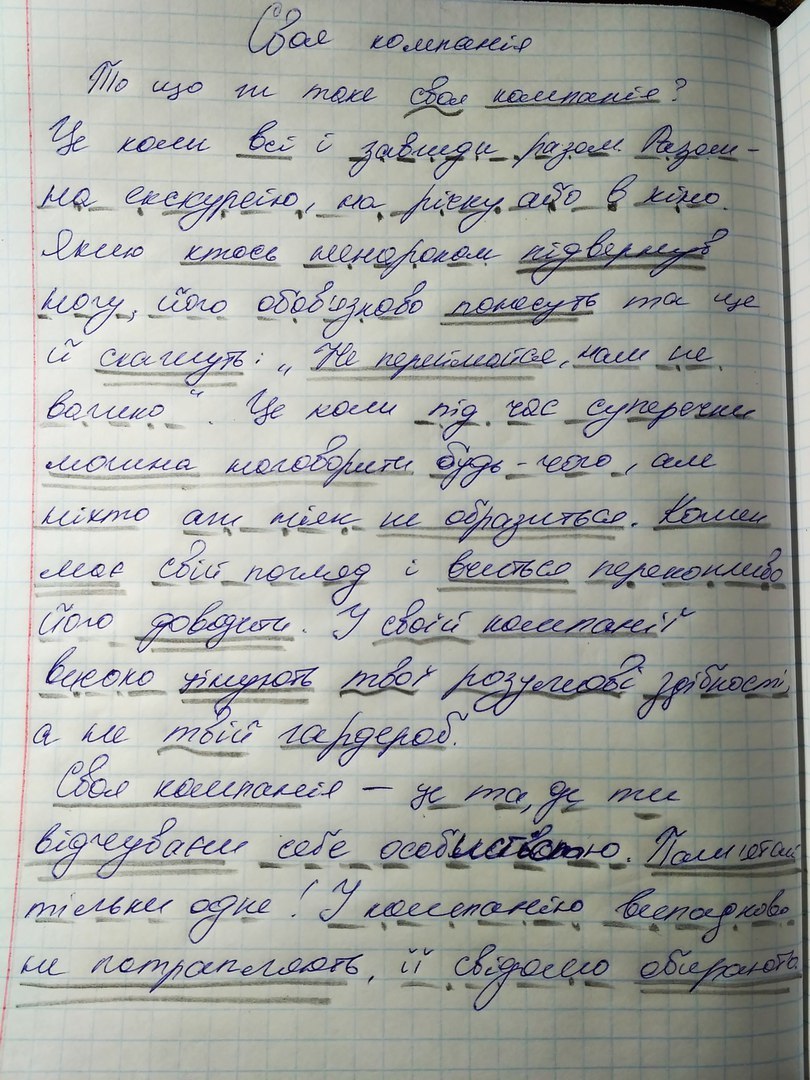 Своя компанія
То що ж таке своя компанія?
Це коли всі і завжди разом. Разом –
на екскурсію, на річку або в кіно.
Якщо хтось ненароком підвернув
ногу, його обов'язково понесуть та ще
й скажуть: „Не переймайся, нам не
важко". Це коли під час суперечки
можна наговорити будь-чого, але
ніхто ані тіяк не образиться. Кожен
має свій погляд і вчиться переконливо
його доводити. У своїй компанії
високо цінують твої розумові здібності,
а не твій гардероб.
Своя компанія – це та, де ти
відчуваєш себе особистістю. Пам'ятай
тільки одне! У компанію випадково
не потрапляють, її свідомо обирають.